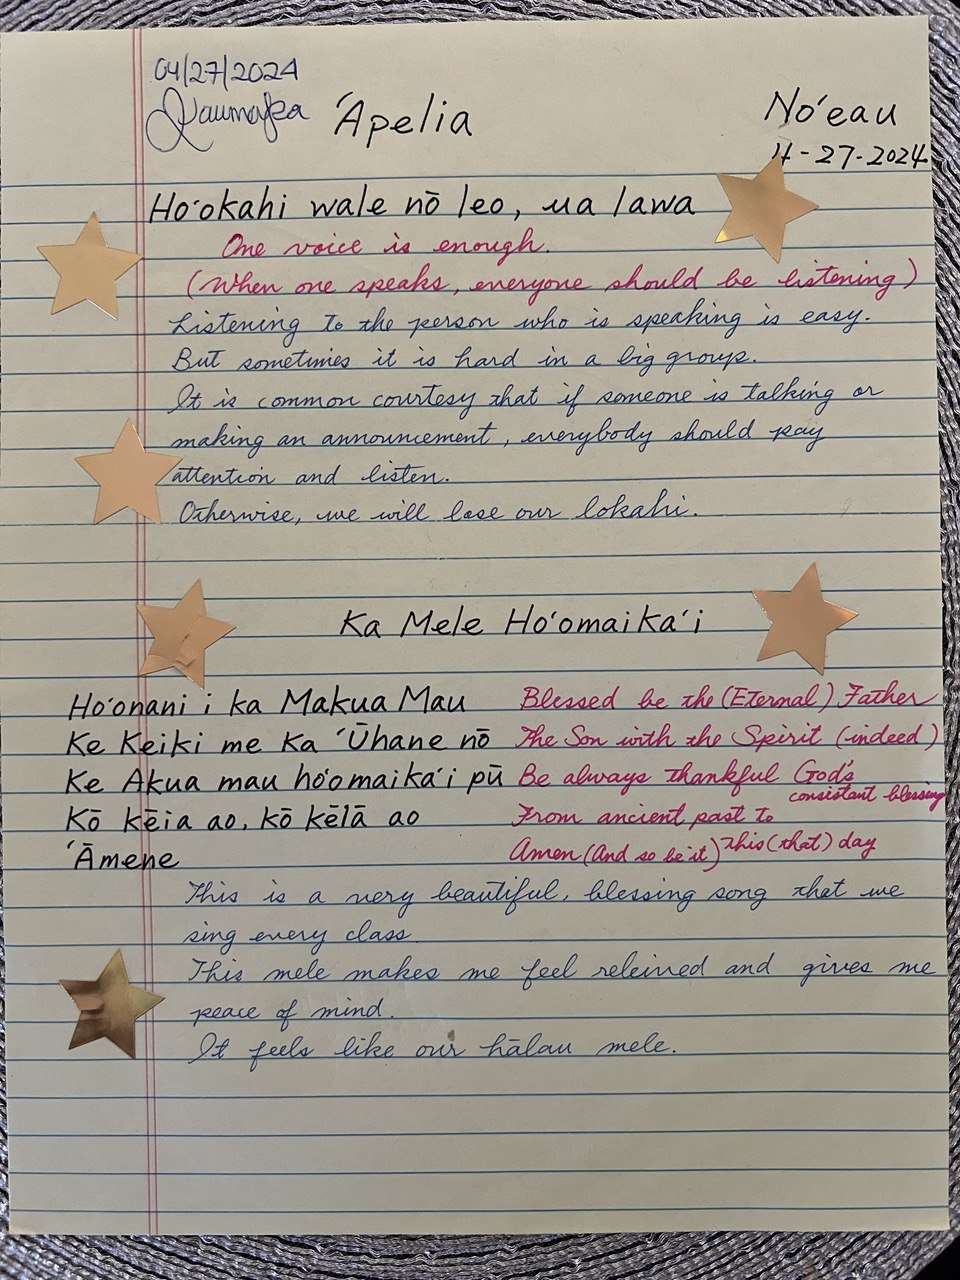 04/27/2024
Kaumaka
ʻApelia
Noʻeau
4-27-2024
Hoʻokahi wale nō leo, ua lawa
One voice is enough.
(When one speaks, everyone should be listening)
Listening to the person who is speaking is easy.
But sometimes it is hard in a big group.
It is common courtesy that if someone is talking or
making an announcement, everybody should pay
attention and listen.
Otherwise, we will lose our lokahi.
Ka Mele Hoʻomaikaʻi
Hoʻonani i ka Makua Mau Blessed be the (Eternal) Father
Ke Keiki me Ka ʻŪhane nō The Son with the Spirit (indeed)
Ke Akua mau hoʻomaikaʻi pū Be always thankful God's
consistant blessing
Kō kēia ao, kō kēlā ao From ancient past to
this (that) day
ʻĀmene Amen (And so be it)
This is a very beautiful, blessing song that we
sing every class.
This mele makes me feel releived and gives me
peace of mind.
It feels like our hālau mele.